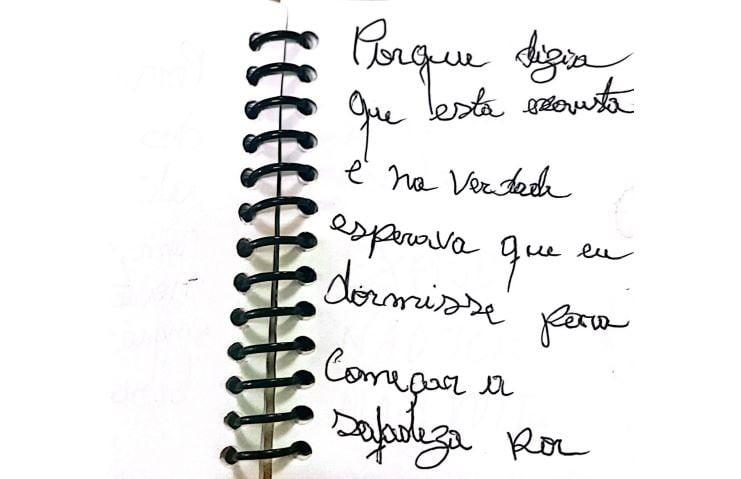 Porque dizia
que esta exausta
e na verdade
esperava que eu
dormisse para
começar a
safadeza por